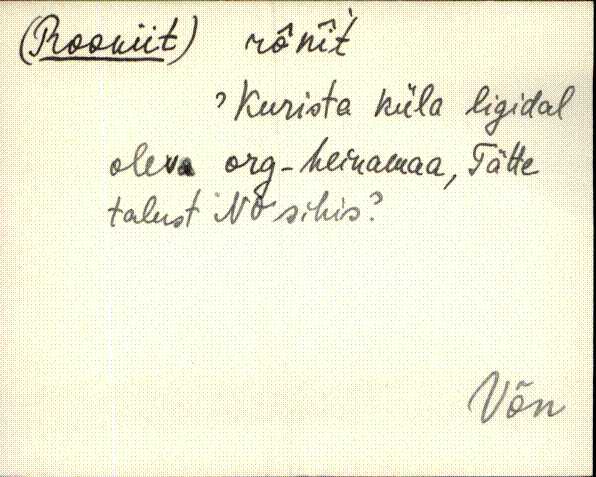 (Rooniit) rônît̀
? Kurista küla ligidal
oleva org-heinamaa, Tätte
talust NO sihis?
Võn